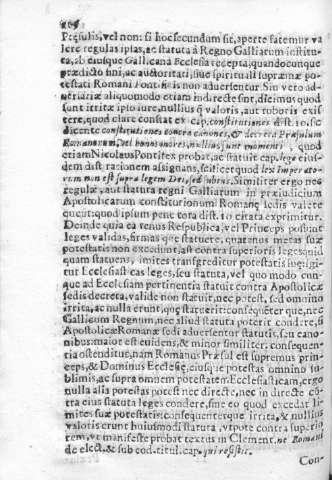 Præsulis, vel non: si hoc secundum sit, aperte fatemur va
lere regulas ipsas, ac statuta à Regno Galliarum institu-
ta, ab eiusque Gallicana Ecclesia recepta, quandocunque
prædicto fini, ac auctoritati, siue spirituali supræmæ po-
testati Romani Pontificis non aduersentur. Sin verò ad-
uersentur aliquomodo etiam indirecte sint, dicimus quod
sunt irritæ ipso iure, nullius q; valoris, aut roboris exis-
tere, quod clare constat ex cap. constitutiones dist. 10. sic
dicente constitutiones contra canones, & decreta Præsulum
Romanorum, vel bonos mores, nullius sunt momenti, quod
etiam Nicolaus Pontifex probat, ac statuit cap. lege eius-
dem dist. rationem assignans, scilicet quod lex Imperato-
rum non est supra legem Dei, sed subtus. Similiter ergo nec
regulæ, aut statuta regni Galliarum in præiudicium
Apostolicarum constitutionum Romanæ sedis valete
queunt: quod ipsum pene tota dist. 10. citata exprimitur.
Deinde quia ea tenus Respublica, vel Princeps possunt
leges validas, firmas que statuere, quatenus metas suæ
potestatis non excedunt, ast contra superioris leges quid
quam statuens, limites transgreditur potestatis suę: igi-
tur Ecclesiasticas leges, seu statuta, vel quo modo cun-
que ad Ecclesiam pertinentia statuit contra Apostolicæ
sedis decreta, valide non statuit, nec potest, sed omnino
irrita, ac nulla erunt, quę statuerit: consequēter que, nec
Gallicum Regnum, nec aliud statuta poterit condere, si
Apostolicæ Romanæ sedi aduersentur statutis, seu cano-
nibus: maior est euidens, & minor similiter: consequen-
tia ostenditur, nam Romanus Præsul est supremus prin-
ceps, & Dominus Ecclesię, eiusque potestas omnino su-
blimis, ac supra omnem potestatem Ecclesiasticam, ergo
nulla alia potestas potest nec directe, nec in directe cō-
tra eius statuta leges condere, sine eo quod excedat li-
mites suæ potestatis: consequenterque irrita, & nullius
valoris erunt huiusmodi statuta, vtpote contra superio
rem, vt manifeste probat textus in Clement. ne Romani
de elect. & sub eod. titul. cap. qui resistit.
Con-